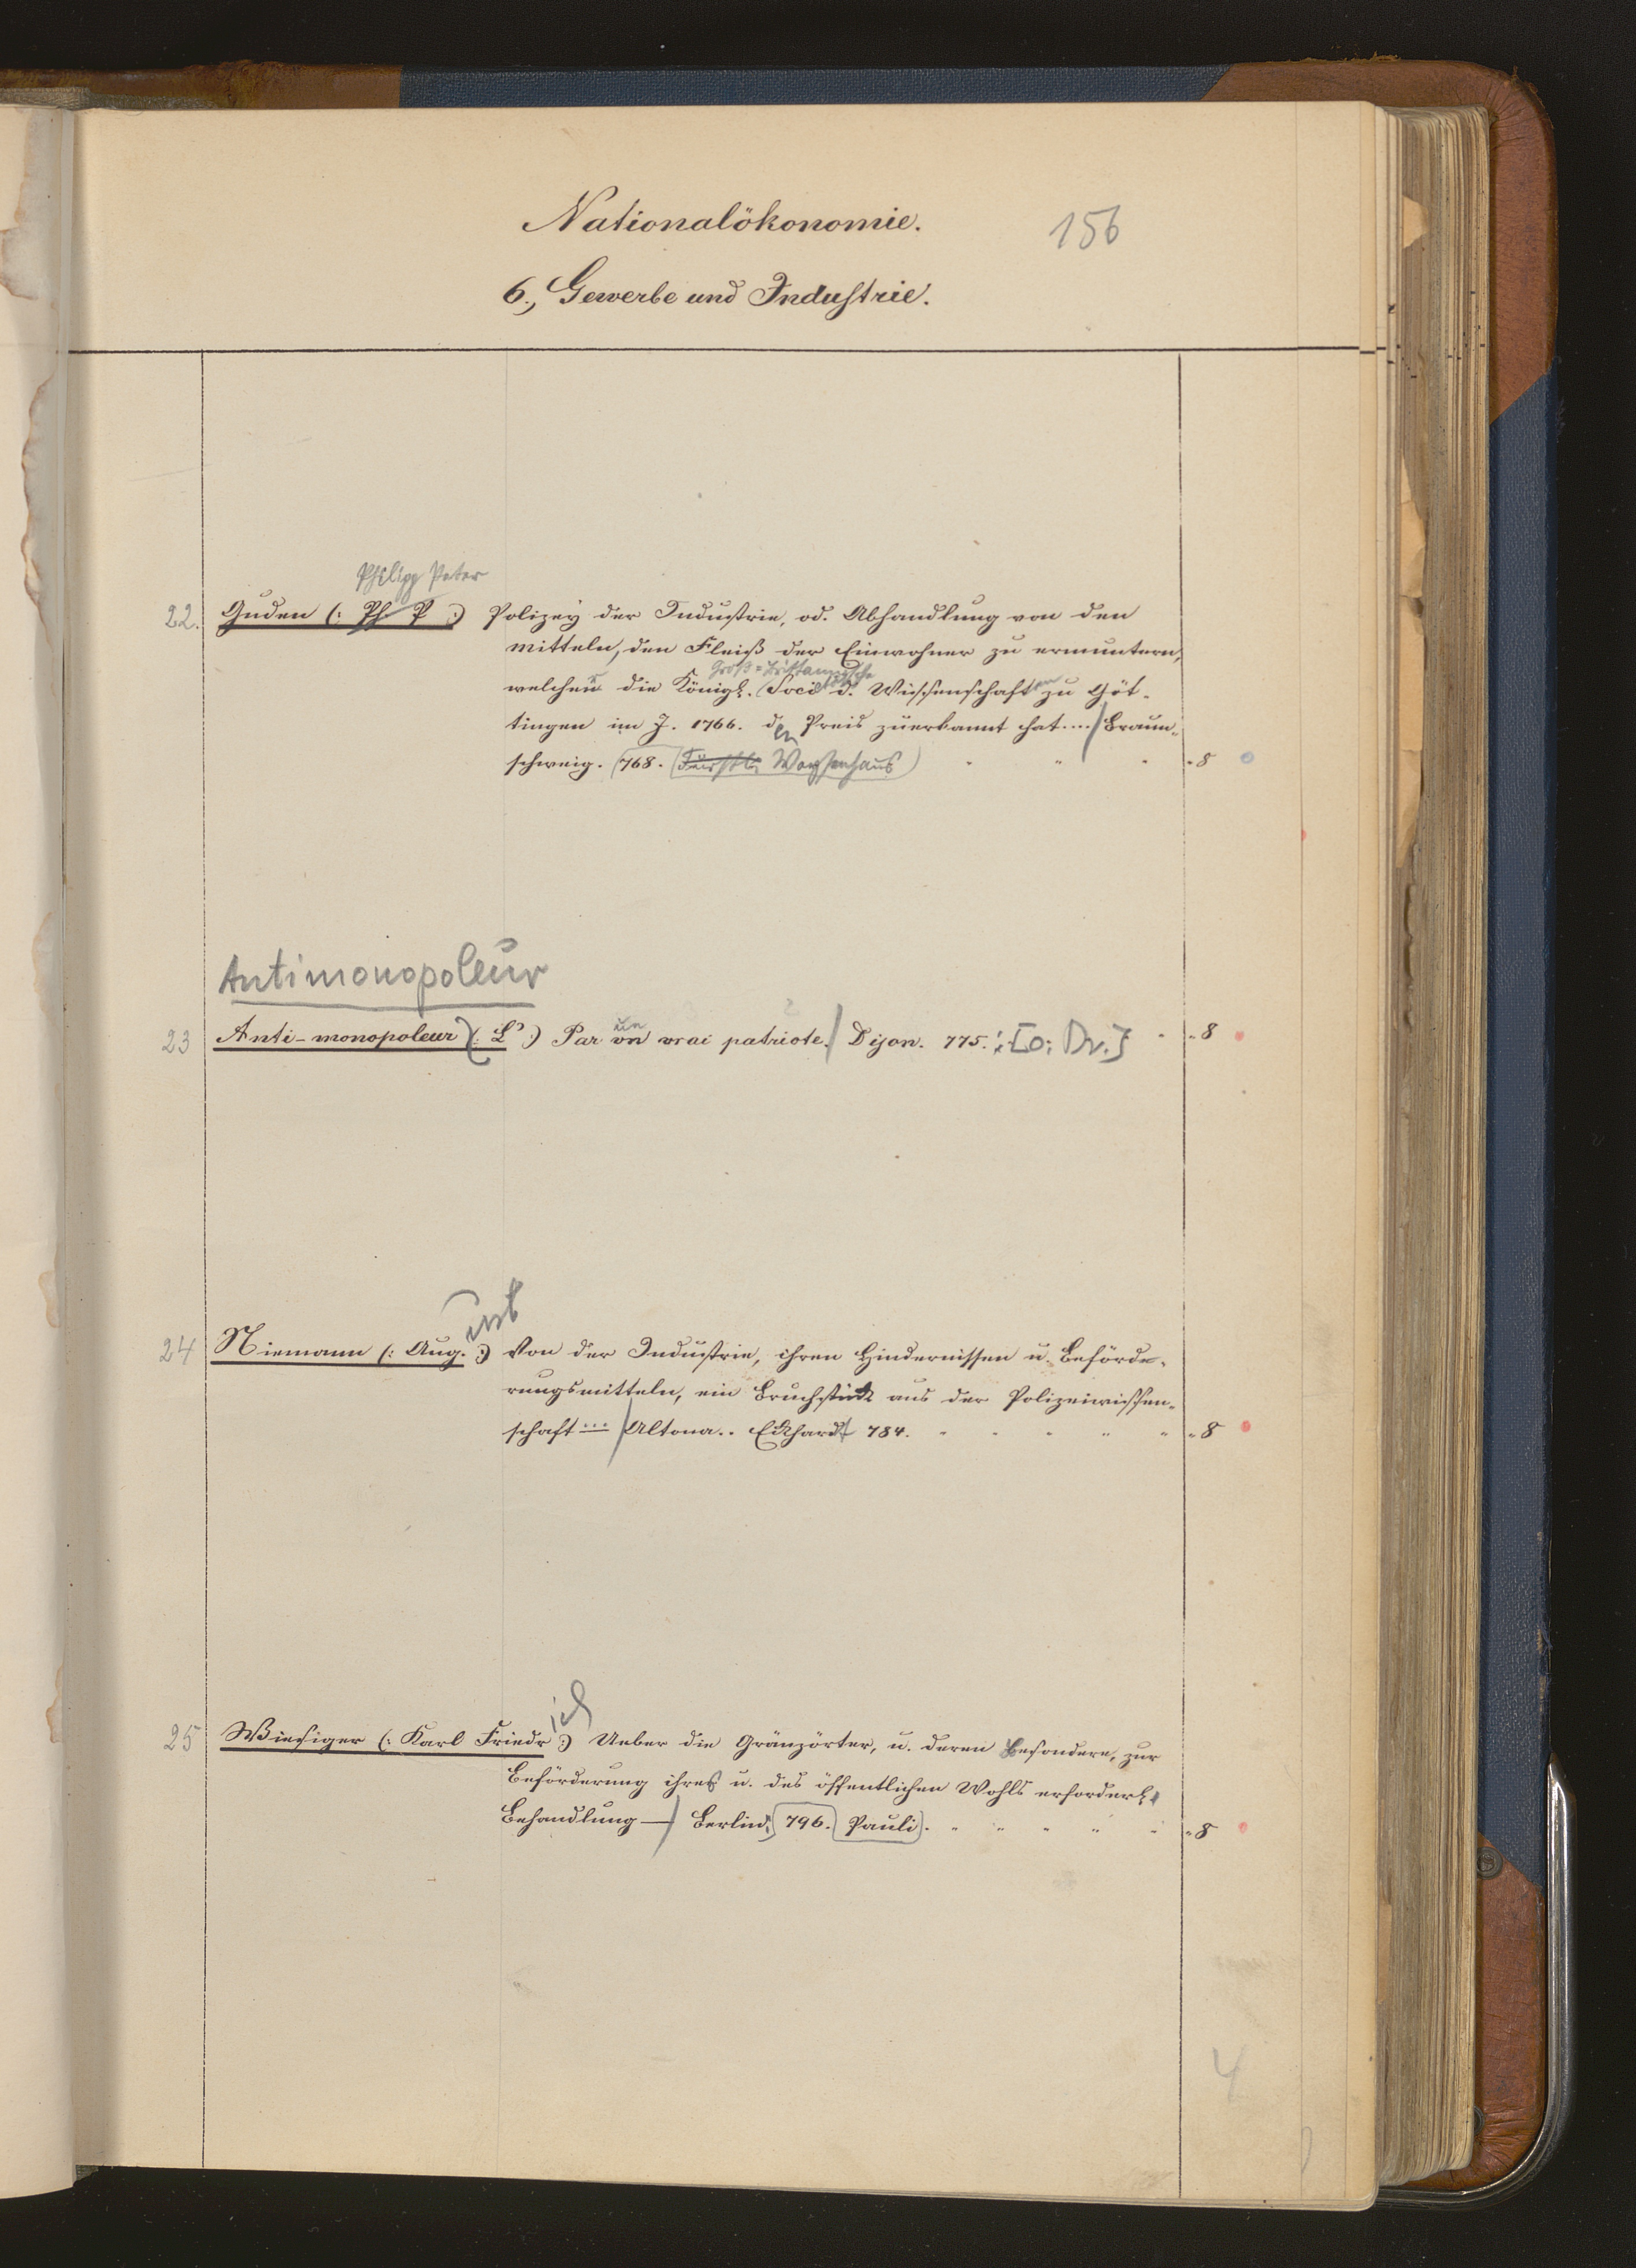 Nationalökonomie.
156
6., Gewerbe und Industrie.
Philipp Peter
22. Guden (: Ph P :) Polizey der Industrie, od. Abhandlung von den
Mitteln, den Fleiß der Einwohner zu ermuntern,
Groß=Brittannische
welchen die Königl. Societät d. Wissenschaften zu Göt-
tingen im J. 1766. den Preis zuerkannt hat..../ Braun-
schweig. 768. (Fürstl. Waysenhaus) " 8
Antimonopoleur
un
23 Anti-monopoleur (: L' :) Par vn vrai patriote. / Dijon. 775. [o. Dr.] " 8
ust
24 Niemann (: Aug. :) Von der Industrie, ihren Hindernissen u. Beförde-
rungsmitteln, ein Bruchstück aus der Polizeiwissen-
schaft ... / Altona.. Eckhardt 784. " 8
ich
25 Wiesiger (: Karl Friedr :) Ueber die Gränzörter, u. deren besondere, zur
Beförderung ihres u. des öffentlichen Wohls erforderl.
Behandlung — / Berlin. 796. Pauli. " 8
4